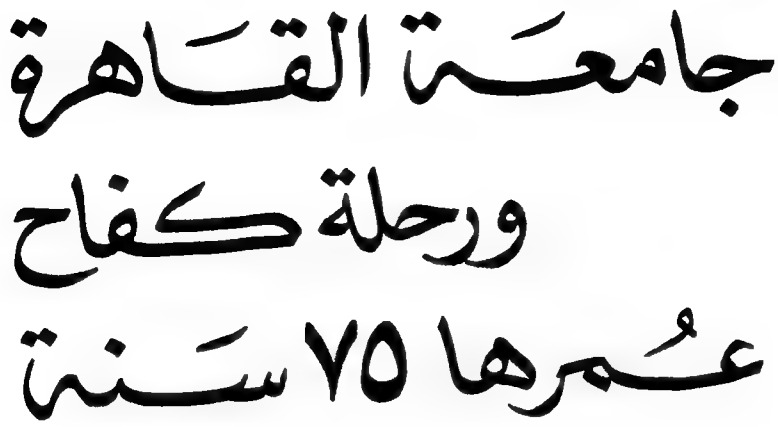 جامعَة القَاهرة
ورحلة كفاح
عُمرها ٧٥ سَنة